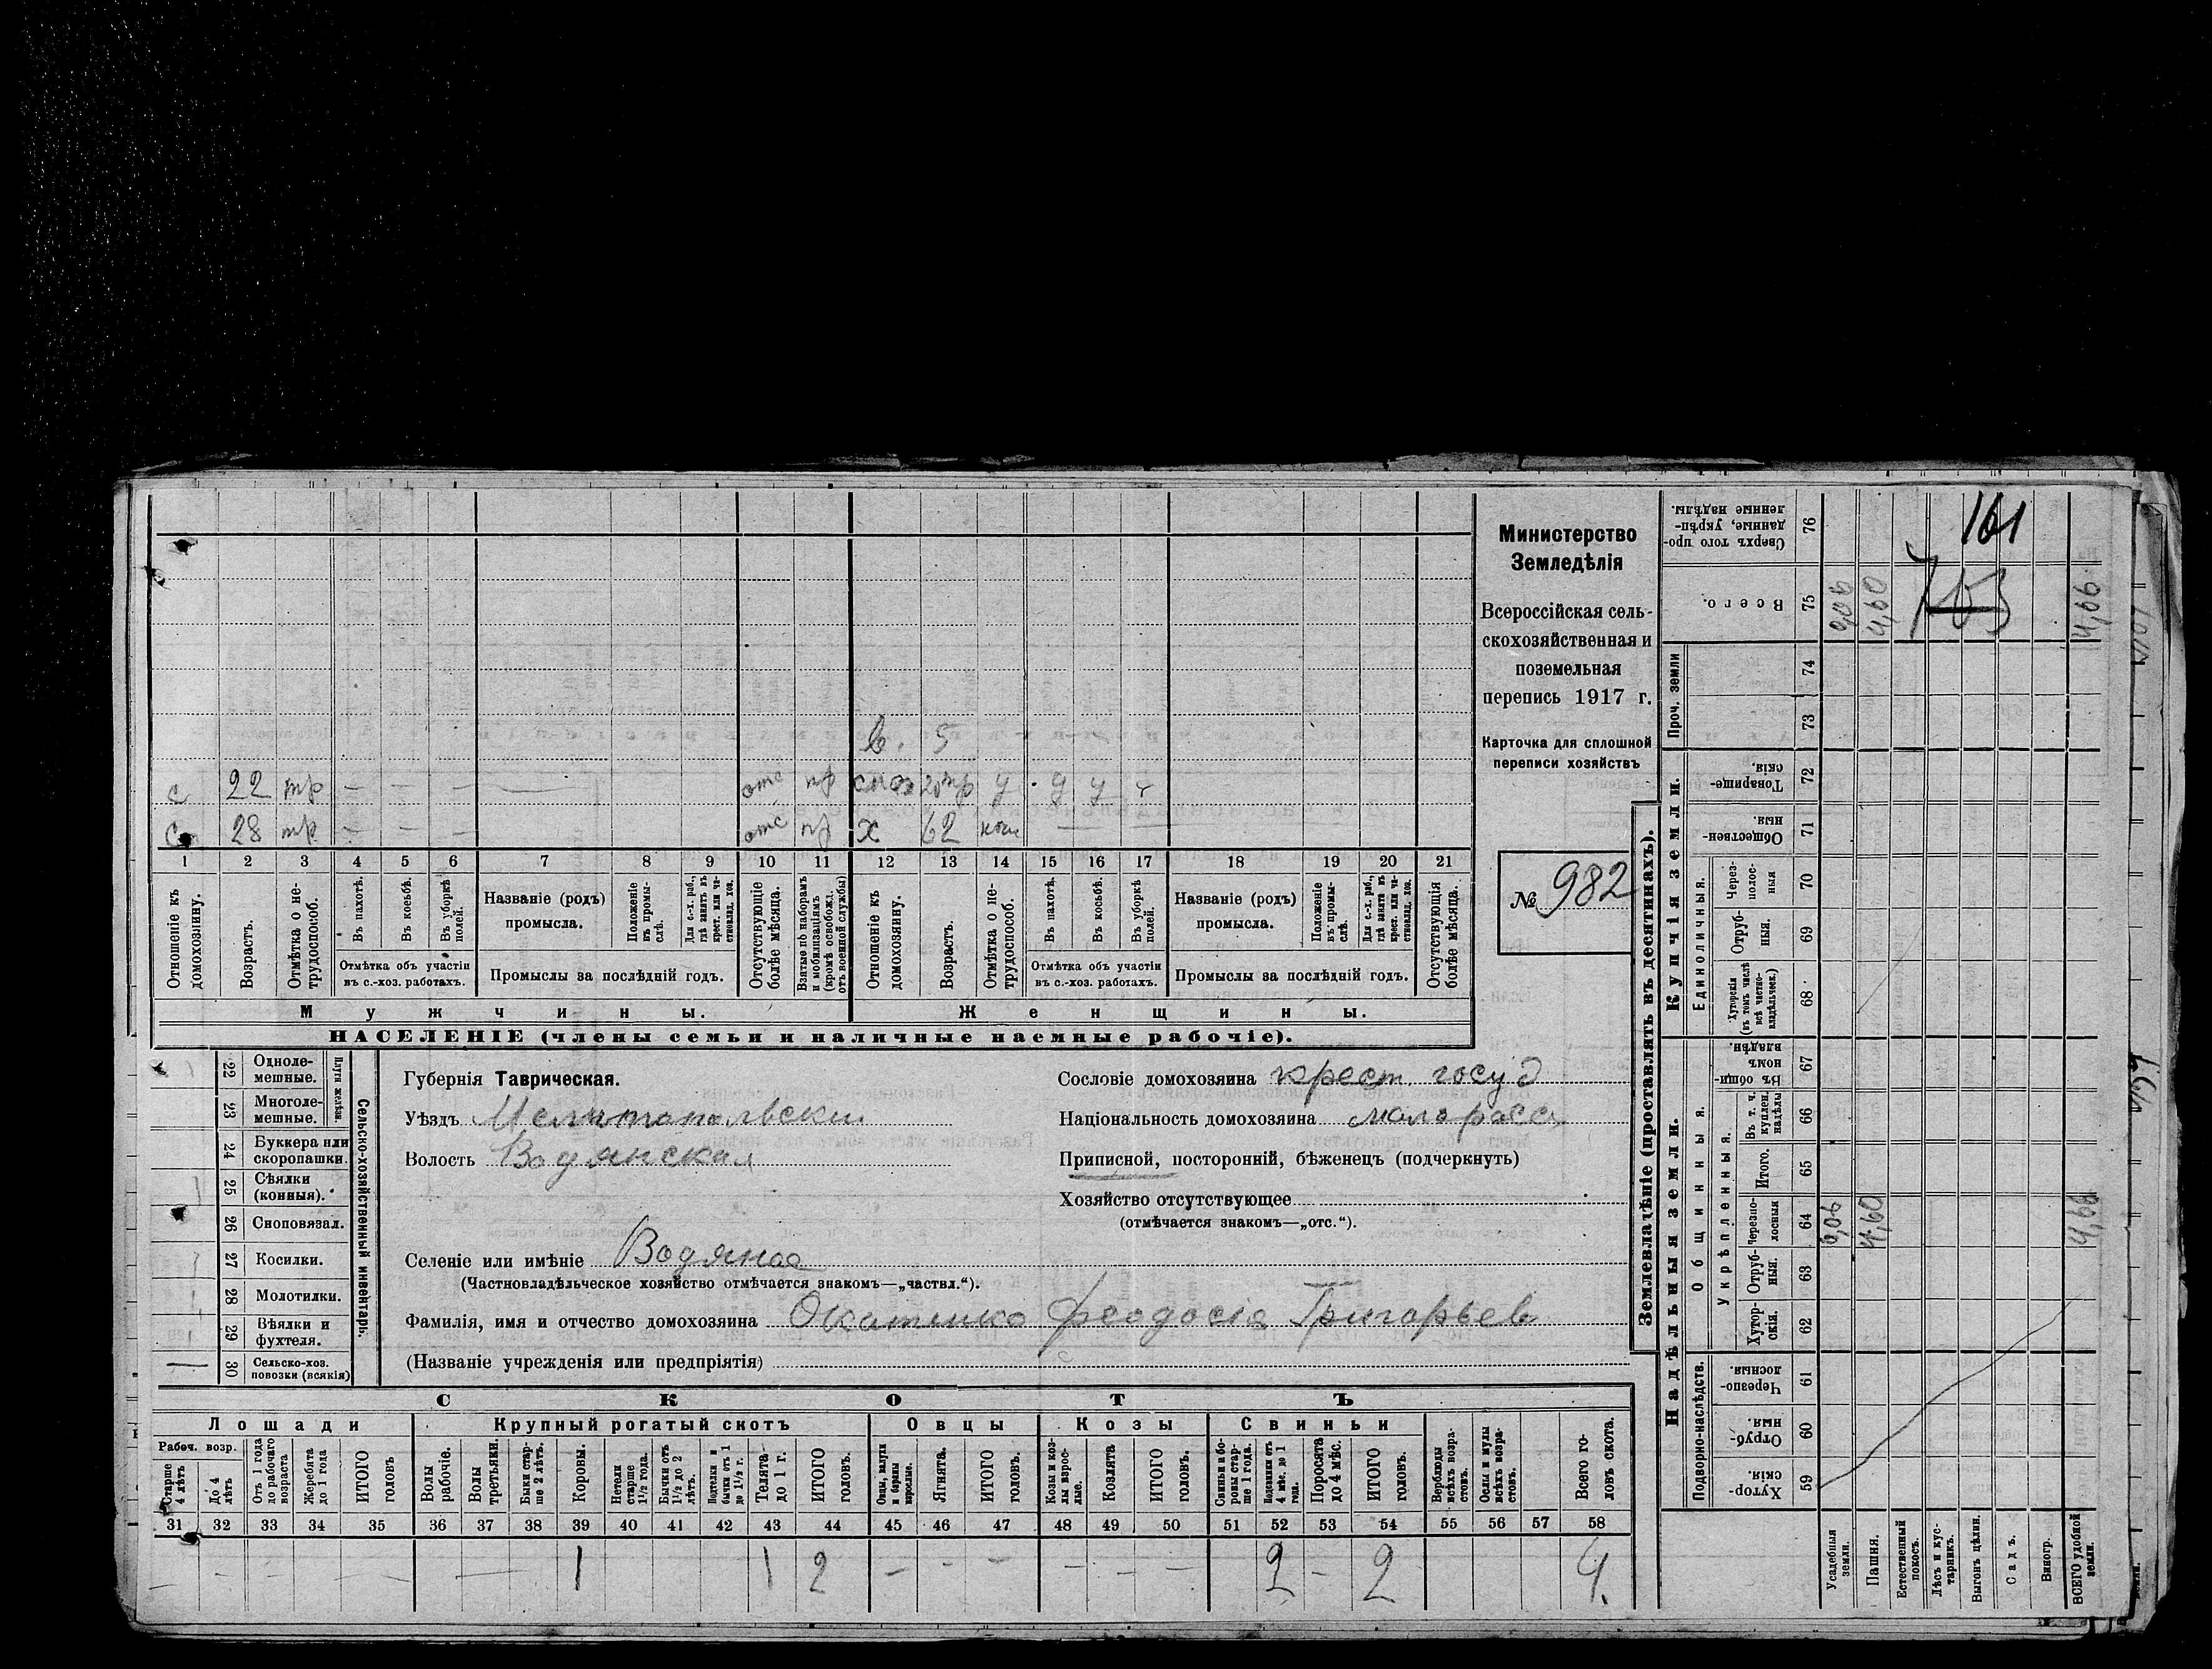 Министерство
Земледѣлія
Всероссійская сель-
скохозяйственная и
поземельная
перепись 1917 г.
Карточка для сплошной
переписи хозяйствъ
№ 982
161
703
в. 5
с 22 тр — — — — отс пр снох 20 тр у д у
с 28 тр — — — отс пр х 62 — —
1 2 3 4 5 6 7 8 9 10 11 12 13 14 15 16 17 18 19 20 21
Отношеніе къ домохозяину.
Возрастъ.
Отмѣтка о не-трудоспособ.
Въ пахотѣ.
Въ косьбѣ.
Въ уборкѣ полей.
Названіе (родъ) промысла.
Положеніе въ промы-слѣ.
Для с.-х. раб., гдѣ занятъ въ крест. или ча-стновлад. хоз.
Отсутствующіе болѣе мѣсяца.
Взятые по наборамъ и мобилизаціямъ (кромѣ освобожд. отъ военной службы)
Отношеніе къ домохозяину.
Возрастъ.
Отмѣтка о не-трудоспособ.
Въ пахотѣ.
Въ косьбѣ.
Въ уборкѣ полей.
Названіе (родъ) промысла.
Положеніе въ промы-слѣ.
Для с.-х. раб., гдѣ занята въ крест. или ча-стновлад. хоз.
Отсутствующія болѣе мѣсяца.
Отмѣтка объ участіи въ с.-хоз. работахъ.
Промыслы за послѣдній годъ.
Отмѣтка объ участіи въ с.-хоз. работахъ.
Промыслы за послѣдній годъ.
Мужчины. Женщины.
НАСЕЛЕНІЕ (члены семьи и наличные наемные рабочіе).
Сельско-хозяйственный инвентарь.
Плуги желѣзн.
22 Одноле-мешные.
23 Многоле-мешные.
24 Буккера или скоропашки.
25 Сѣялки (конныя).
26 Сноповязал.
27 Косилки.
28 Молотилки.
29 Вѣялки и фухтеля.
30 Сельско-хоз. повозки (всякія) —
Губернія Таврическая.
Уѣздъ Мелитопольскій
Волость Водянская
Селеніе или имѣніе Водяное
(Частновладѣльческое хозяйство отмѣчается знакомъ—„частвл.“).
Фамилія, имя и отчество домохозяина Окатенко Феодосія Григорьев
(Названіе учрежденія или предпріятія)
Сословіе домохозяина крест. госуд
Національность домохозяина малоросс
Приписной, посторонній, бѣженецъ (подчеркнуть)
Хозяйство отсутствующее
(отмѣчается знакомъ—„отс.“).
СКОТЪ
Лошади Крупный рогатый скотъ Овцы Козы Свиньи
Рабоч. возр.
Старше 4 лѣтъ
До 4 лѣтъ
Отъ 1 года до рабочаго возраста
Жеребята до 1 года
ИТОГО головъ
Волы рабочіе.
Волы третьяки.
Быки стар-ше 2 лѣтъ.
Коровы.
Нетели старше 1½ года.
Бычки отъ 1½ до 2 лѣтъ.
Подтелки и бычки отъ 1 до 1½ г.
Телята до 1 г.
ИТОГО головъ.
Овцы, валухи и бараны взрослые.
Ягнята.
ИТОГО головъ.
Козы и коз-лы взрос-лые.
Козлята
ИТОГО головъ.
Свиньи и бо-ровы стар-ше 1 года.
Подсвинки отъ 4 мѣс. до 1 года.
Поросята до 4 мѣс.
ИТОГО головъ.
Верблюды всѣхъ возра-стовъ.
Ослы и мулы всѣхъ возра-стовъ.
Всего го-ловъ скота.
31 32 33 34 35 36 37 38 39 40 41 42 43 44 45 46 47 48 49 50 51 52 53 54 55 56 57 58
— — — — — — 1 1 2 — — — — — — 2 — 2 4.
Землевладѣніе (проставлять въ десятинахъ).
Надѣльныя земли. Купчія земли. Проч. земли
Подворно-наслѣдств.
Общинныя.
Укрѣпленныя.
Единоличныя.
Хутор-скія. 59
Отруб-ныя. 60
Черезпо-лосныя. 61
Хутор-скія. 62
Отруб-ныя. 63
Черезпо-лосныя 64
Итого. 65
Въ т. ч. куплен. надѣлы 66
Въ общин-номъ владѣн. 67
Хуторскія (въ томъ числѣ всѣ частно-владѣльческ.) 68
Отруб-ныя. 69
Через-полос-ныя 70
Обществен-ныя. 71
Товарище-скія. 72
73
74
Всего. 75
Сверхъ того про-данные, укрѣп-ленные надѣлы. 76
Усадебныя земли. 0,06 0,06
Пашня. 4,60 4,60
Естественный покосъ.
Лѣсъ и кус-тарникъ.
Выгонъ цѣлин.
Садъ.
Виногр.
ВСЕГО удобной земли. 4,66 4,66